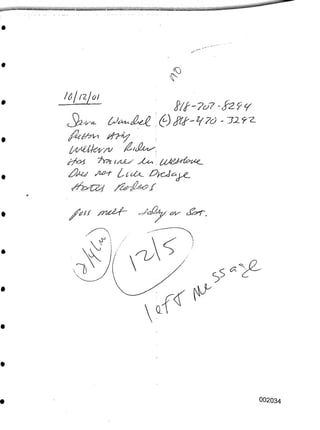 no
10/12/01
818-707-8294
Sara Wandel (c) 818-470-3292
Western Rider
Has trainer in Westlake
Does not Like Dresage
Hates Rodeos
Poss meet or Sat.
12/5
left message
002034